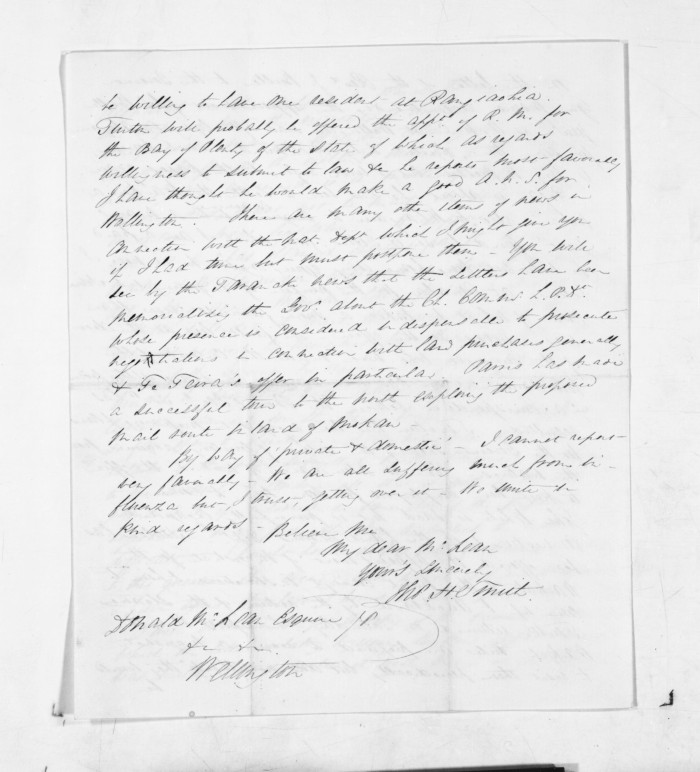 be willing to have one resident at Rangiaohia.
will probably be offered the appt of R. M. for
the Bay of Plenty of the state of which as regards
willingness to submit to law &c he reports most favorably
I have thought he would make a good A. N. S. for
Wellington. There are many other items of news in
connection with the Nat. Dept which I might give you
if I had time but must postpone them - You will
see by the Taranaki news that the Settlers have been
memorializing the Govr about the Ch. Commr L. P. Dt
whose presence is considered indispensable to prosecute
negotiations in connection with land purchases generally
& Te Teira's offer in particular. Parris has made
a successful tour to the north exploring the proposed
mail route inland of Mokau -
By way of 'private & domestic' - I cannot report
very favorably - We are all suffering much from in-
fluenza but, I trust, getting over it - We unite in
kind regards - Believe Me
My dear McLean
Yours Sincerely
Thos. H Smith.
Donald McLean Esquire
&c &c.
Wellington